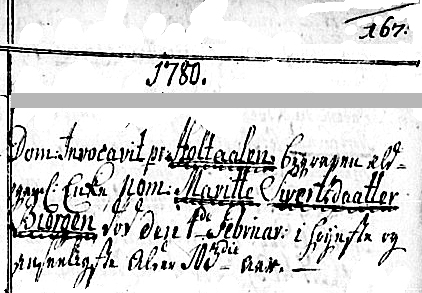 167.
1780.
Dom: Invocavit pr: Holtaalen, begraven eld-
gaml: Enke Nom: Maritte Sivertsdaatter
Biörgen död deje 1de Februar: i höyeste og
anseeligste Alder 103die aar. —